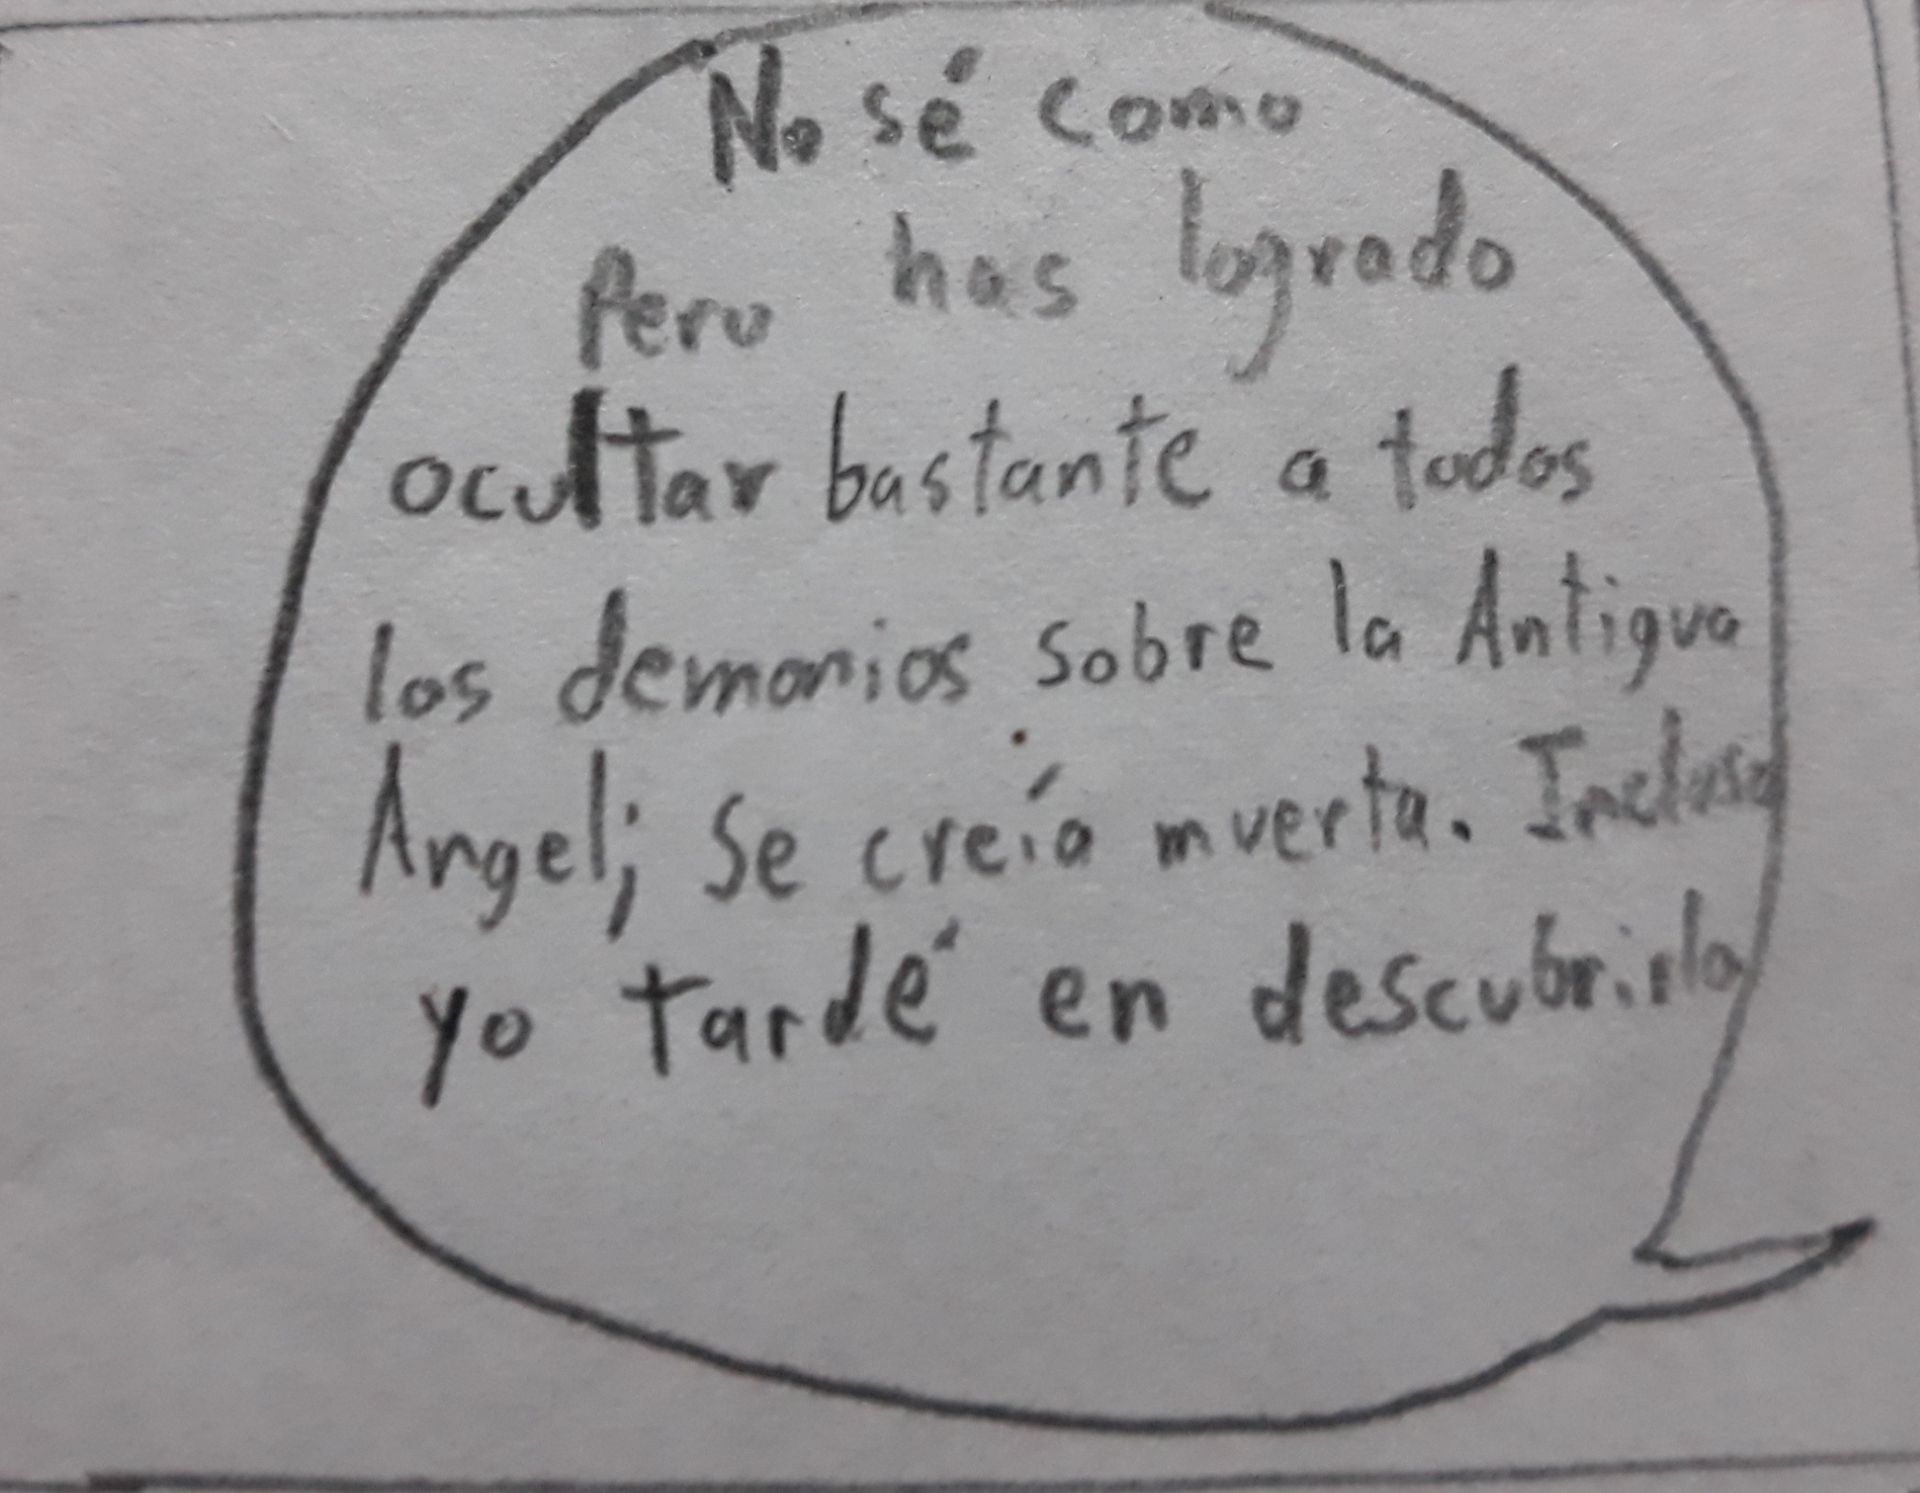 No sé como
Pero has logrado
ocultar bastante a todos
los demonios sobre la Antigua
Angel; Se creía muerta. Incluso
yo tardé en descubrirlo